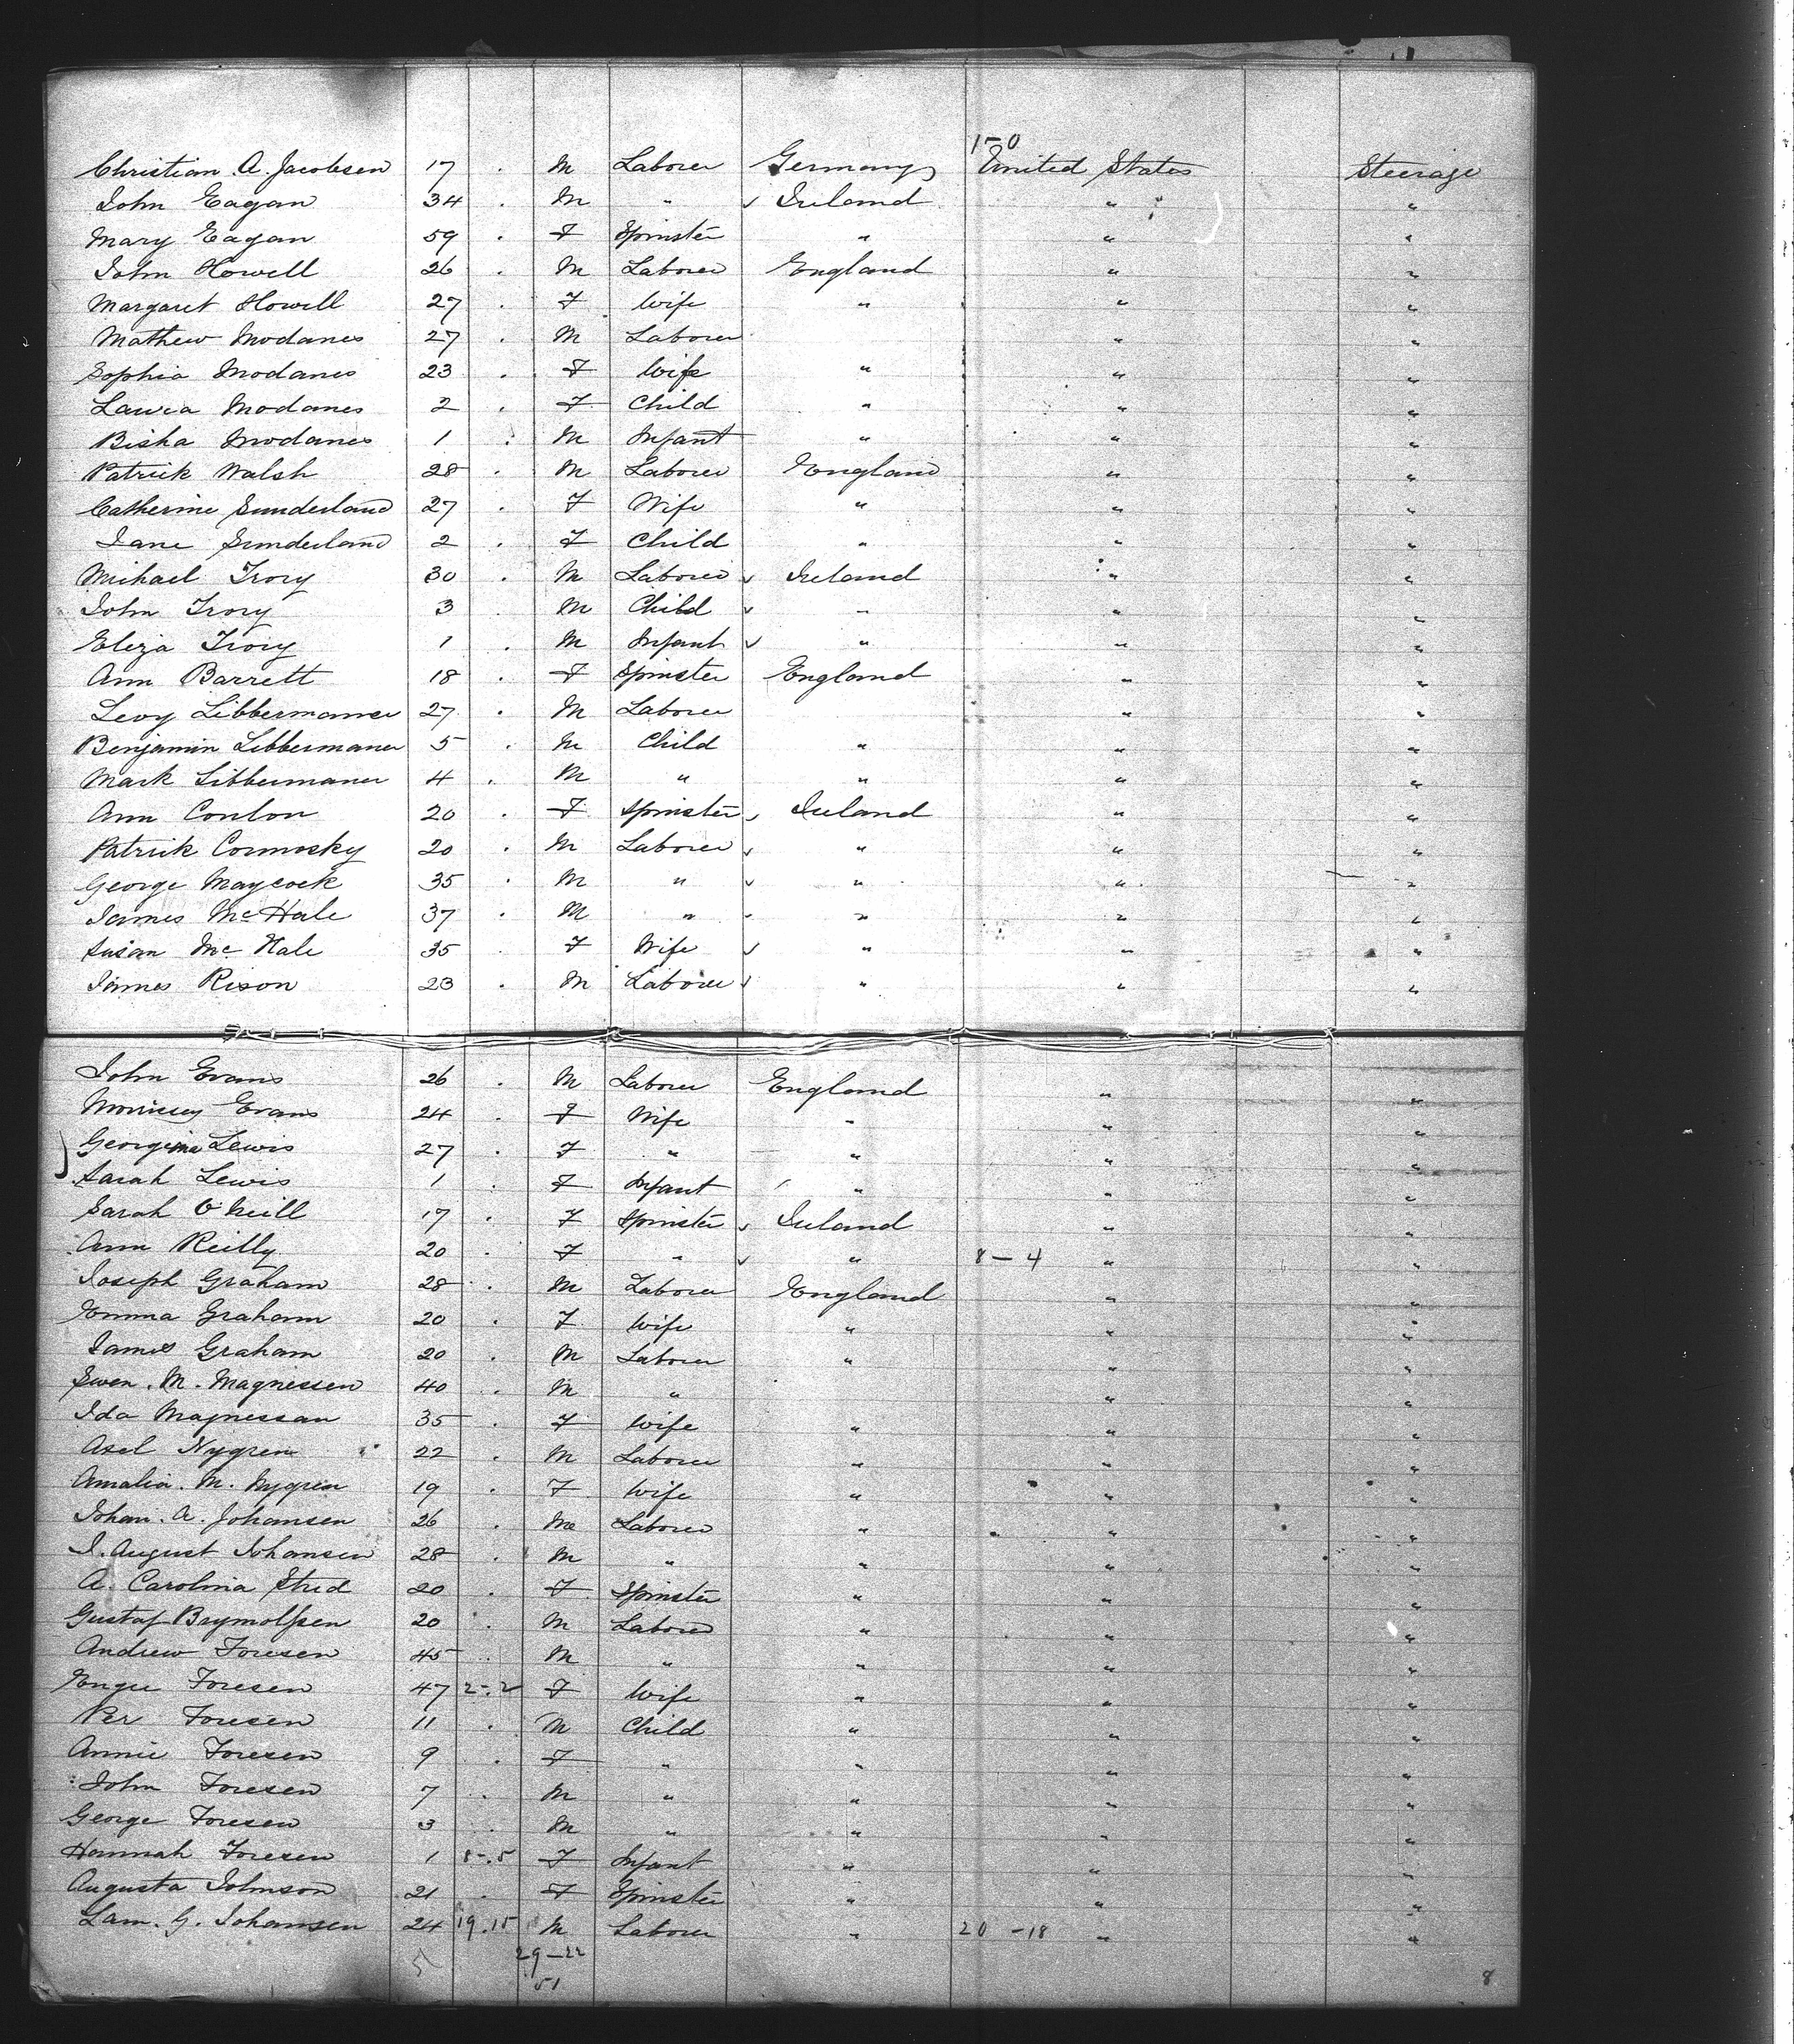 1-0
Christian. A. Jacobsen 17 . M Laborer Germany United States Steerage
John Eagan 34 . M " ✓ Ireland " "
Mary Eagan 59 . F Spinster " " "
John Howell 26 . M Laborer England " "
Margaret Howell 27 . F Wife " " "
Mathew Modanes 27 . M Laborer " "
Sophia Modanes 23 . F Wife " " "
Laura Modanes 2 . F Child " " "
Bisha Modanes 1 . M Infant " " "
Patrick Walsh 28 . M Laborer England " "
Catherine Sunderland 27 . F Wife " " "
Jane Sunderland 2 . F Child " " "
Michael Ivory 30 . M Laborer ✓ Ireland " "
John Ivory 3 . M Child ✓ " " "
Eliza Ivory 1 . M Infant ✓ " " "
Ann Barrett 18 . F Spinster England " "
Levy Libbermaner 27 . M Laborer " "
Benjamin Libbermaner 5 . M Child " " "
Mark Libbermaner 4 . M " " " "
Ann Conlon 20 . F Spinster ✓ Ireland " "
Patrick Cormosky 20 . M Laborer ✓ " " "
George Maycock 35 . M " ✓ " " "
James McHale 37 . M " ✓ " " "
Susan McHale 35 . F Wife ✓ " " "
James Rison 23 . M Laborer ✓ " " "
John Evans 26 . M Laborer England " "
Evans 24 . F Wife " " "
Georgina Lewis 27 . F " " " "
Sarah Lewis 1 . F Infant " " "
Sarah O'Neill 17 . F Spinster ✓ Ireland " "
Ann Reilly 20 . F " ✓ " 8-4 " "
Joseph Graham 28 . M Laborer England " "
Emma Graham 20 . F Wife " " "
James Graham 20 . M Laborer " " "
Swen. M. Magnessen 40 . M " " "
Ida Magnessan 35 . F Wife " " "
Axel Nygren 22 . M Laborer " " "
Amalia. M. Nygren 19 . F Wife " " "
Johan. A. Johansen 26 . M Laborer " " "
J. August Johansen 28 . M " " " "
A. Carolina Stred 20 . F Spinster " " "
Gustaf Brymolfsen 20 . M Laborer " " "
Andrew Foresen 45 . M " " " "
Foresen 47 2-.2 F Wife " " "
Per Foresen 11 . M Child " " "
Annie Foresen 9 . F " " " "
John Foresen 7 . M " " " "
George Foresen 3 . M " " " "
Hannah Foresen 1 8-.5 F Infant " " "
Augusta Johnson 21 . F Spinster " " "
Lam. G. Johansen 24 19.15 M Laborer " 20-18 " "
5 29-22
51 8